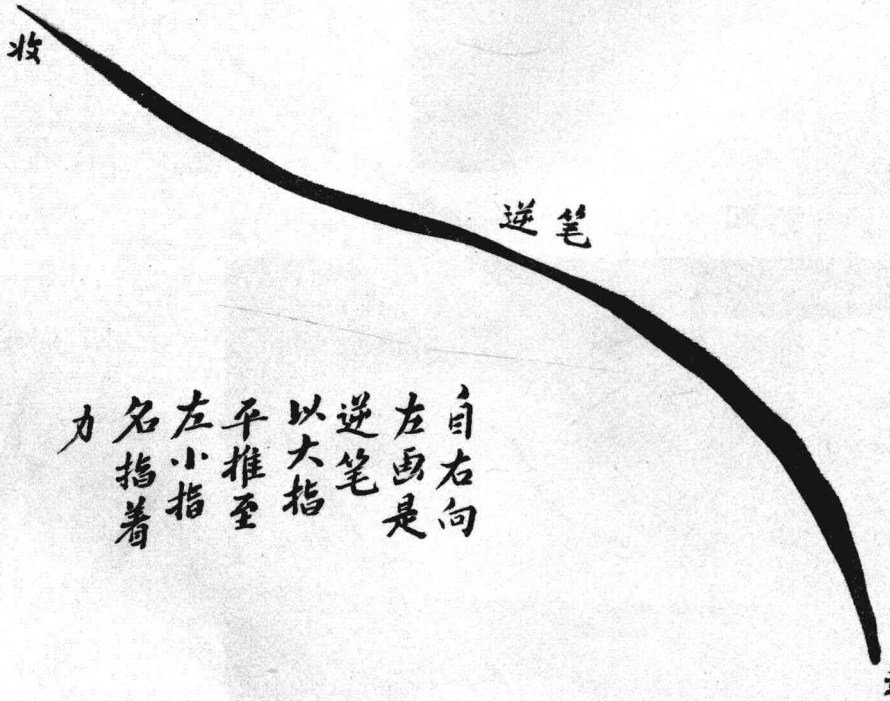 收
逆笔
自右向
左画是
逆笔
以大指
平推至
左小指
名指着
力